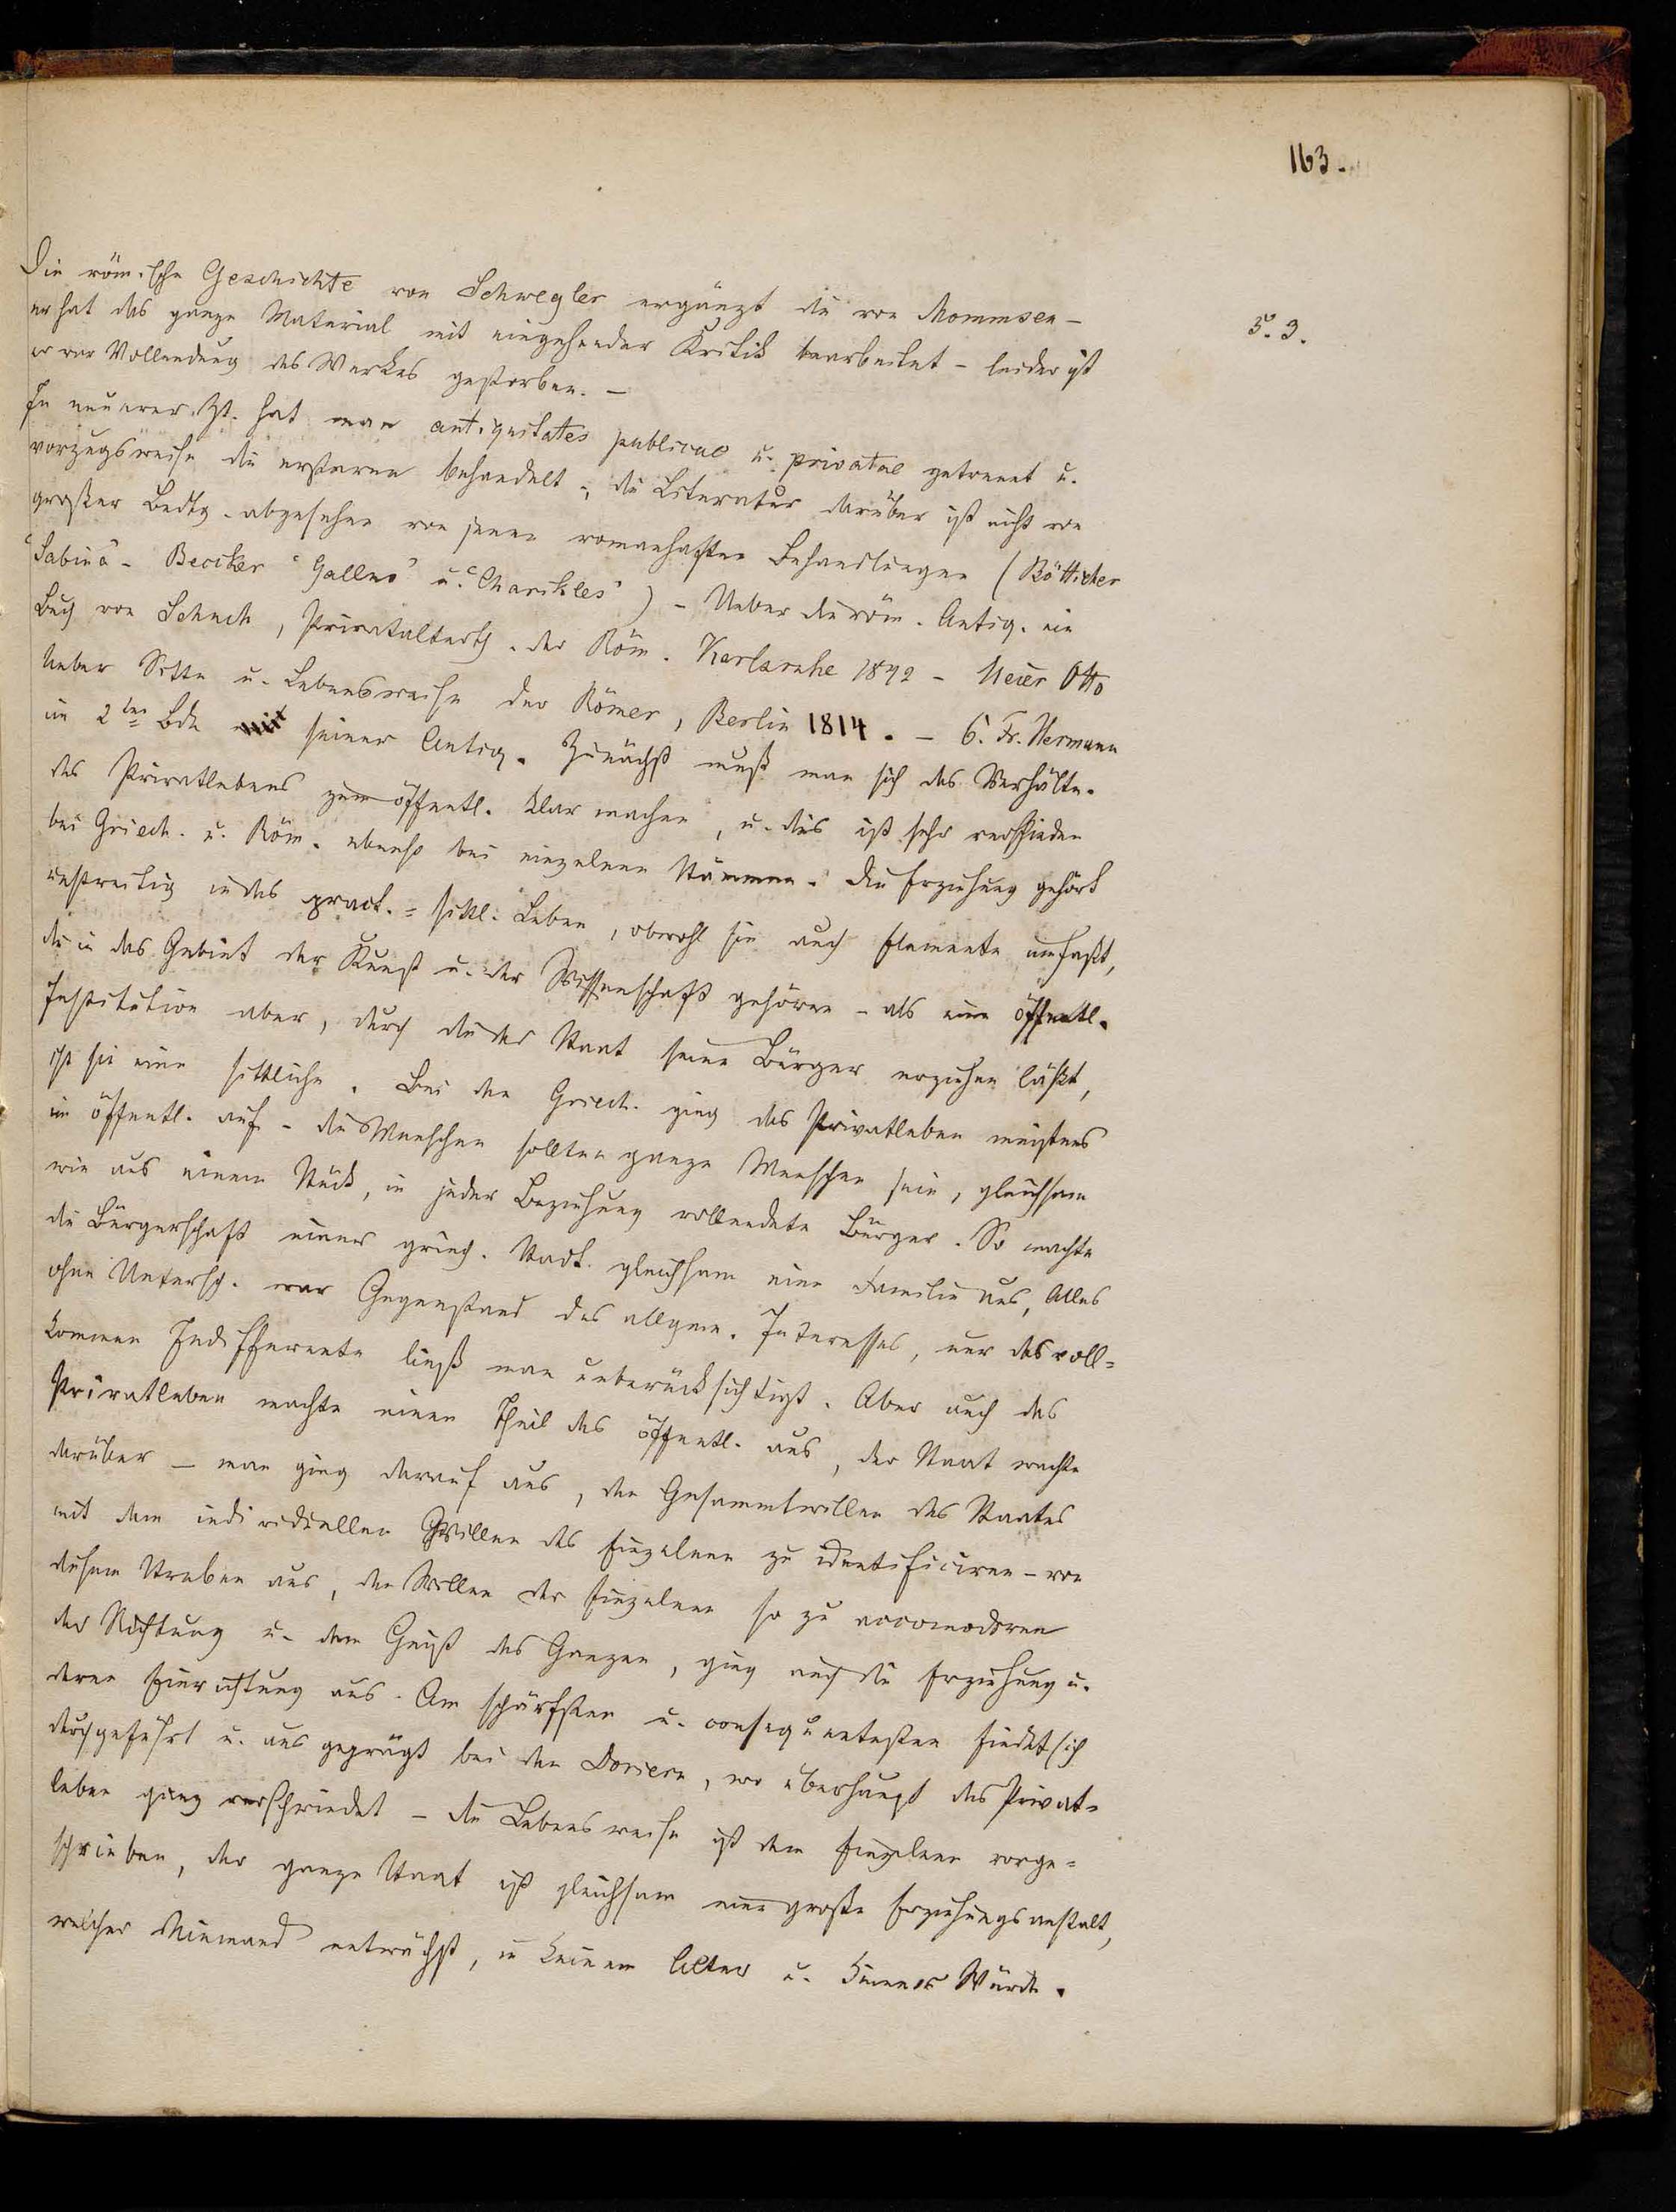 163.
Die römische Geschichte von Schwegler ergänzt die von Mommsen –
5. 3.
er hat das ganze Material mit eingehender Kritik bearbeitet – leider ist
er vor Vollendung des Werkes gestorben. –
In neuerer Zt. hat man antiquitates publicae u. privatae getrennt u.
vorzugsweise die ersteren behandelt; die Literatur darüber ist nicht von
großer Bedtg. abgesehen von jenen romanhaften Behandlungen (Bötticher
"Sabina" – Becker "Gallus" u. "Charikles") – Ueber die röm. Antiq. ein
Buch von Schuch, Privatalterth. der Röm. Karlsruhe 1842 – Meier Otto
Ueber Sitte u. Lebensweise der Römer, Berlin 1814. – C. Fr. Hermann
im 2ten Bde seiner Antiq. Zunächst muß man sich das Verhältn.
des Privatlebens zum öffentl. klar machen, u. dies ist sehr verschieden
bei Griech. u. Röm. ebenso bei einzelnen Stämmen. Die Erziehung gehört
unstreitig in das pract.=sittl. Leben, obwohl sie auch Elemente umfaßt,
die in das Gebiet der Kunst u. der Wissenschaft gehören – als eine öffentl.
Institution aber, durch die der Staat seine Bürger erziehen läßt,
ist sie eine sittliche. Bei den Griech. ging das Privatleben meistens
im öffentl. auf – die Menschen sollten ganze Menschen sein, gleichsam
wie aus einem Stück, in jeder Beziehung vollendete Bürger. So machte
die Bürgerschaft einer griech. Stadt gleichsam eine Familie aus, Alles
ohne Untersch. war Gegenstand des allgem. Interesses, nur das voll=
kommen Indifferente ließ man unberücksichtigt. Aber auch das
Privatleben machte einen Theil des öffentl. aus, der Staat wachte
darüber – man ging darauf aus, den Gesammtwillen des Staates
mit dem individuellen Willen des Einzelnen zu identificiren – von
diesem Streben aus, den Willen der Einzelnen so zu accomodiren
der Richtung u. dem Geist des Ganzen, ging auch die Erziehung u.
deren Einrichtung aus. Am schärfsten u. consequentesten findet sich
durchgeführt u. ausgeprägt bei den Doriern, wo überhaupt das Privat=
leben ganz verschwindet – die Lebensweise ist dem Einzelnen vorge=
schrieben, der ganze Staat ist gleichsam eine große Erziehungsanstalt,
welcher Niemand entwächst, in keinem Alter u. keiner Würde.